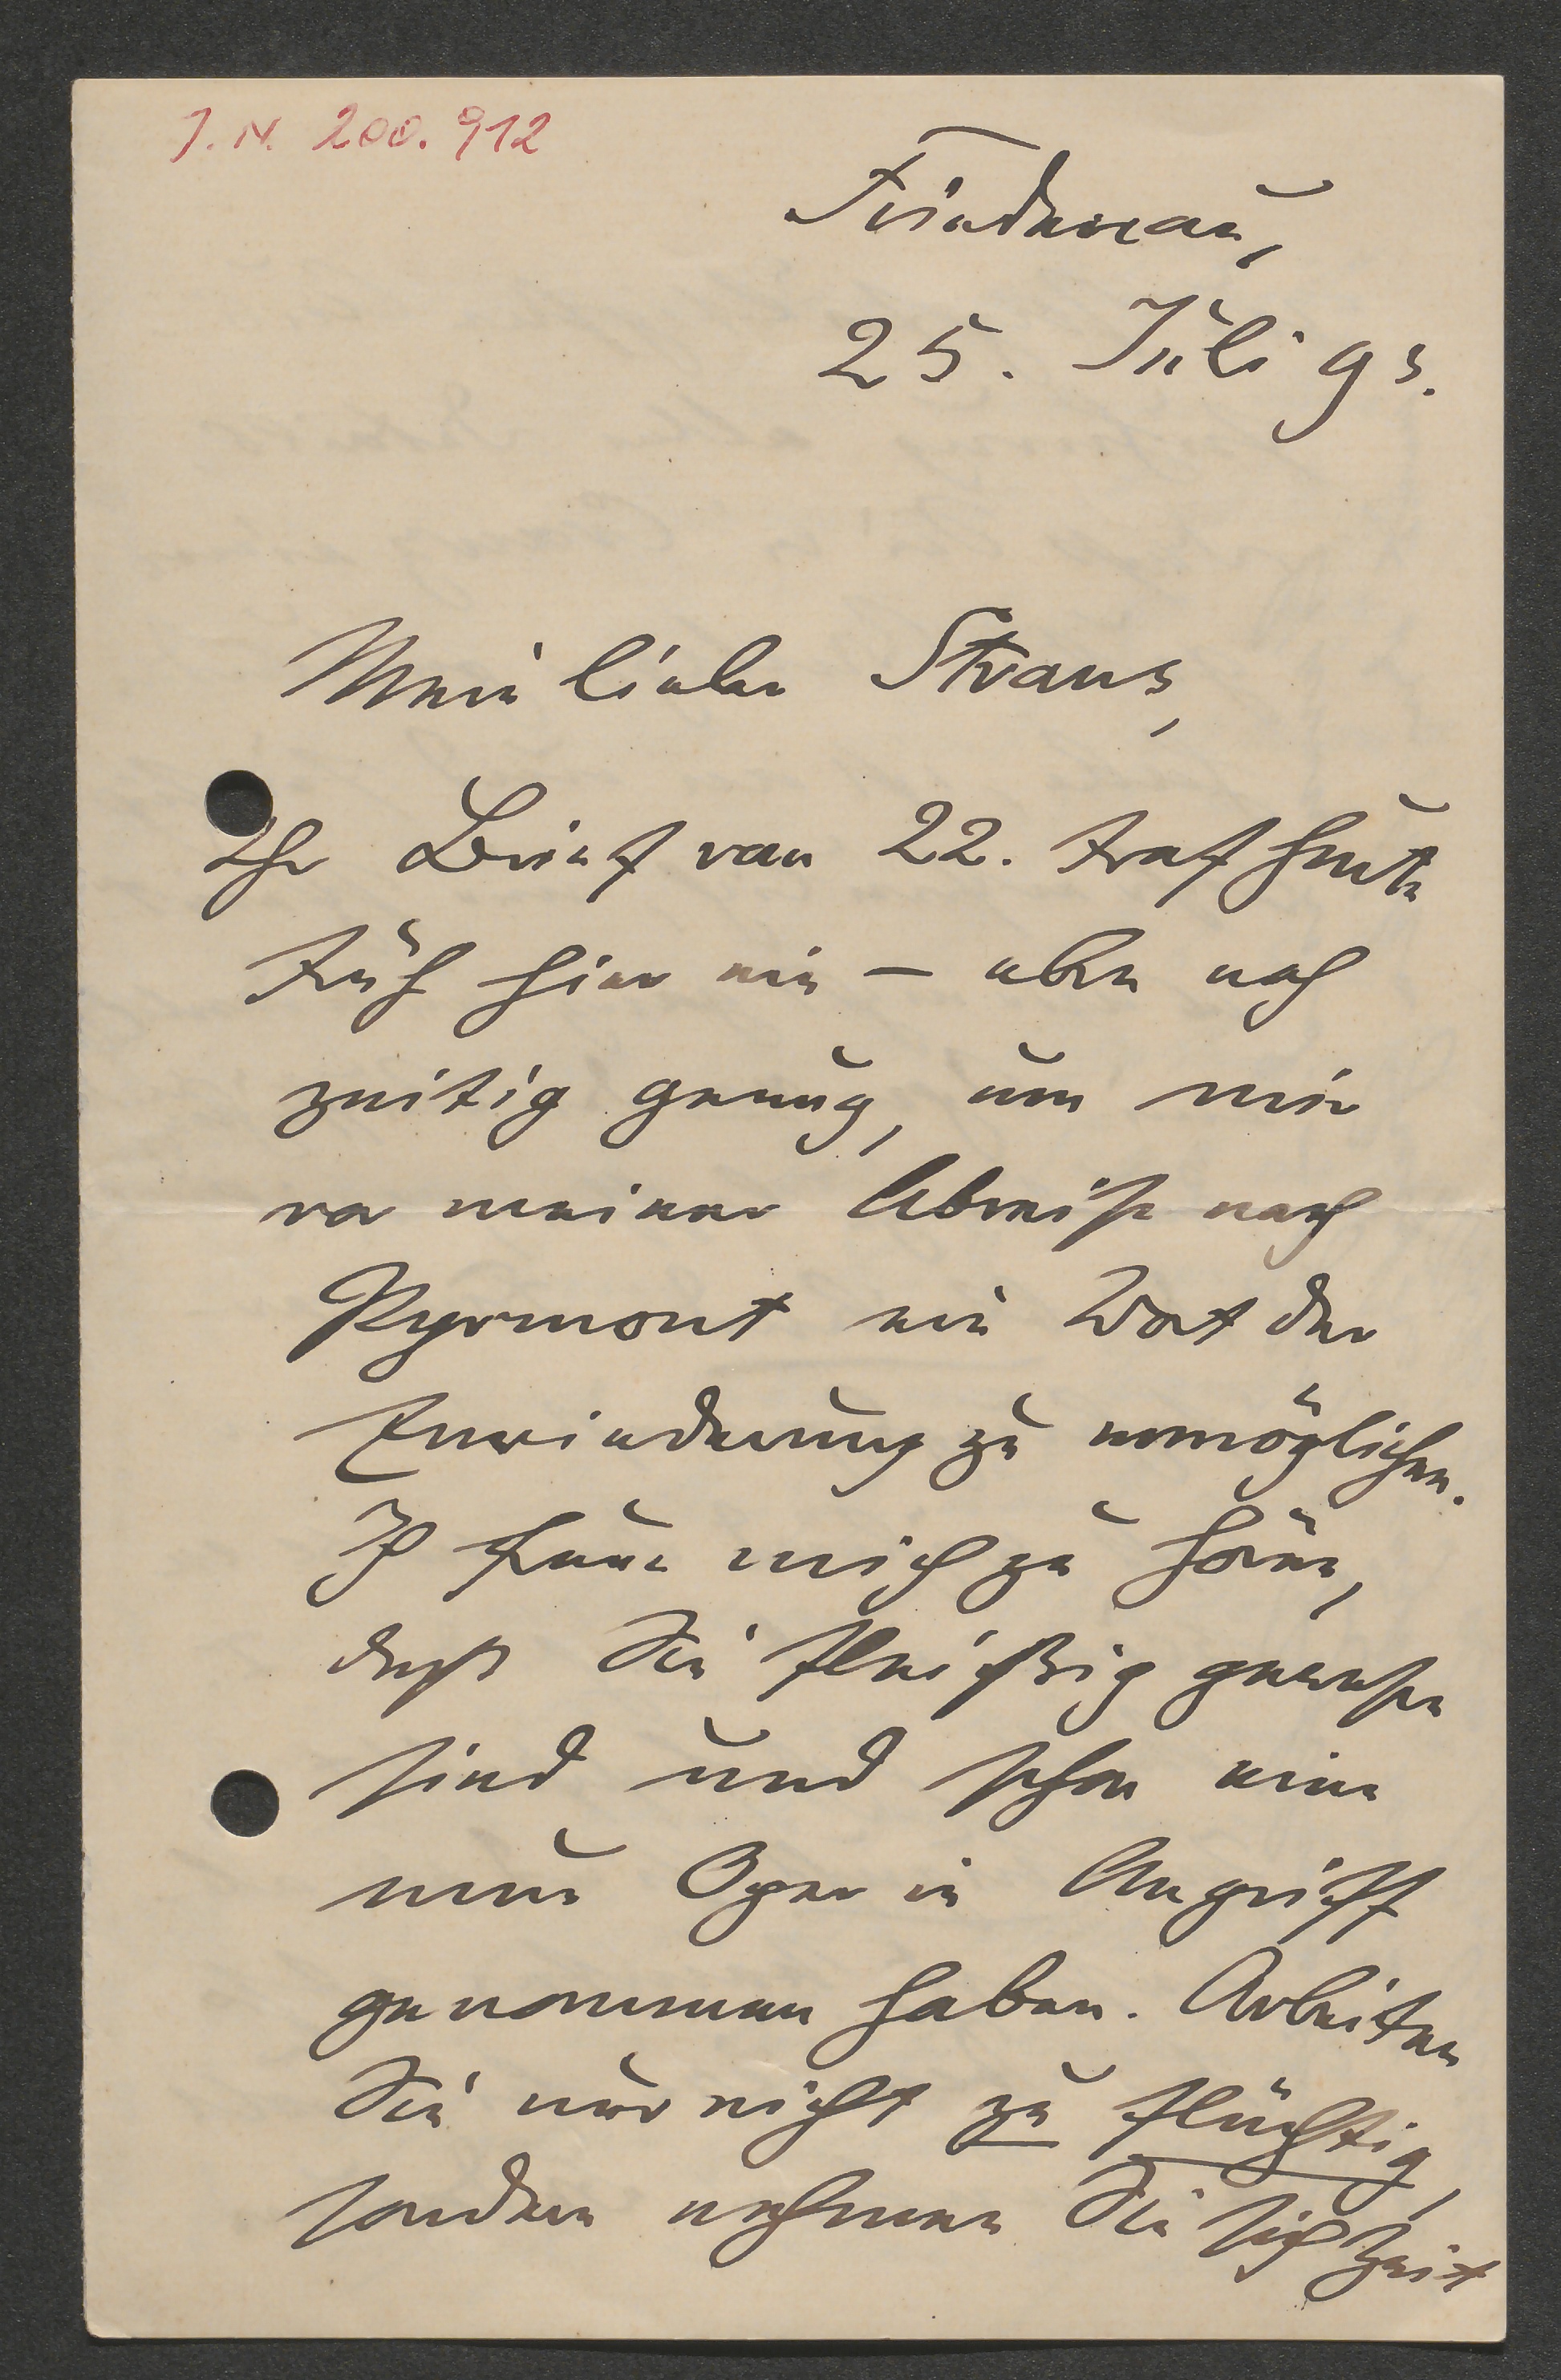 J.N. 200.912
Friedenau,
25. Juli 93.
Mein lieber Straus,
Ihr Brief vom 22. traf heute
früh hier ein – eben noch
zeitig genug, um mir
vor meiner Abreise nach
Pyrmont ein Wort der
Erwiederung zu ermöglichen.
Ich freue mich zu hören,
dass Sie fleißig gewesen
sind und schon eine
neue Oper in Angriff
genommen haben. Arbeiten
Sie nur nicht zu flüchtig,
sondern nehmen Sie sich Zeit